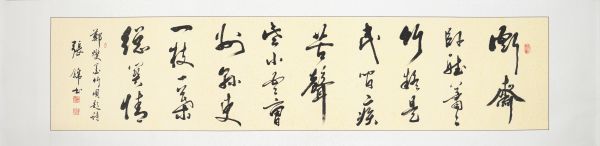 衙齋
臥聽蕭〻
竹疑是
民間疾
苦聲
些小吾曹
州縣吏
一枝一葉
總關情
鄭燮墨竹圖題詩
張 書